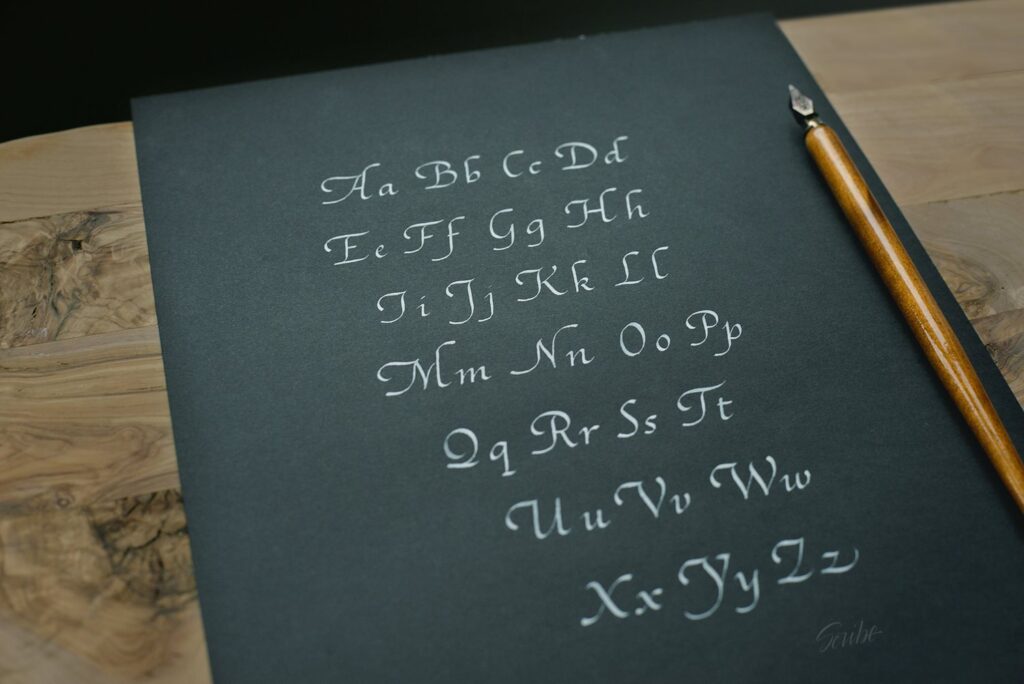 Aa Bb Cc Dd
Ee Ff Gg Hh
Ii Jj Kk Ll
Mm Nn Oo Pp
Qq Rr Ss Tt
Uu Vv Ww
Xx Yy Zz
Scribe